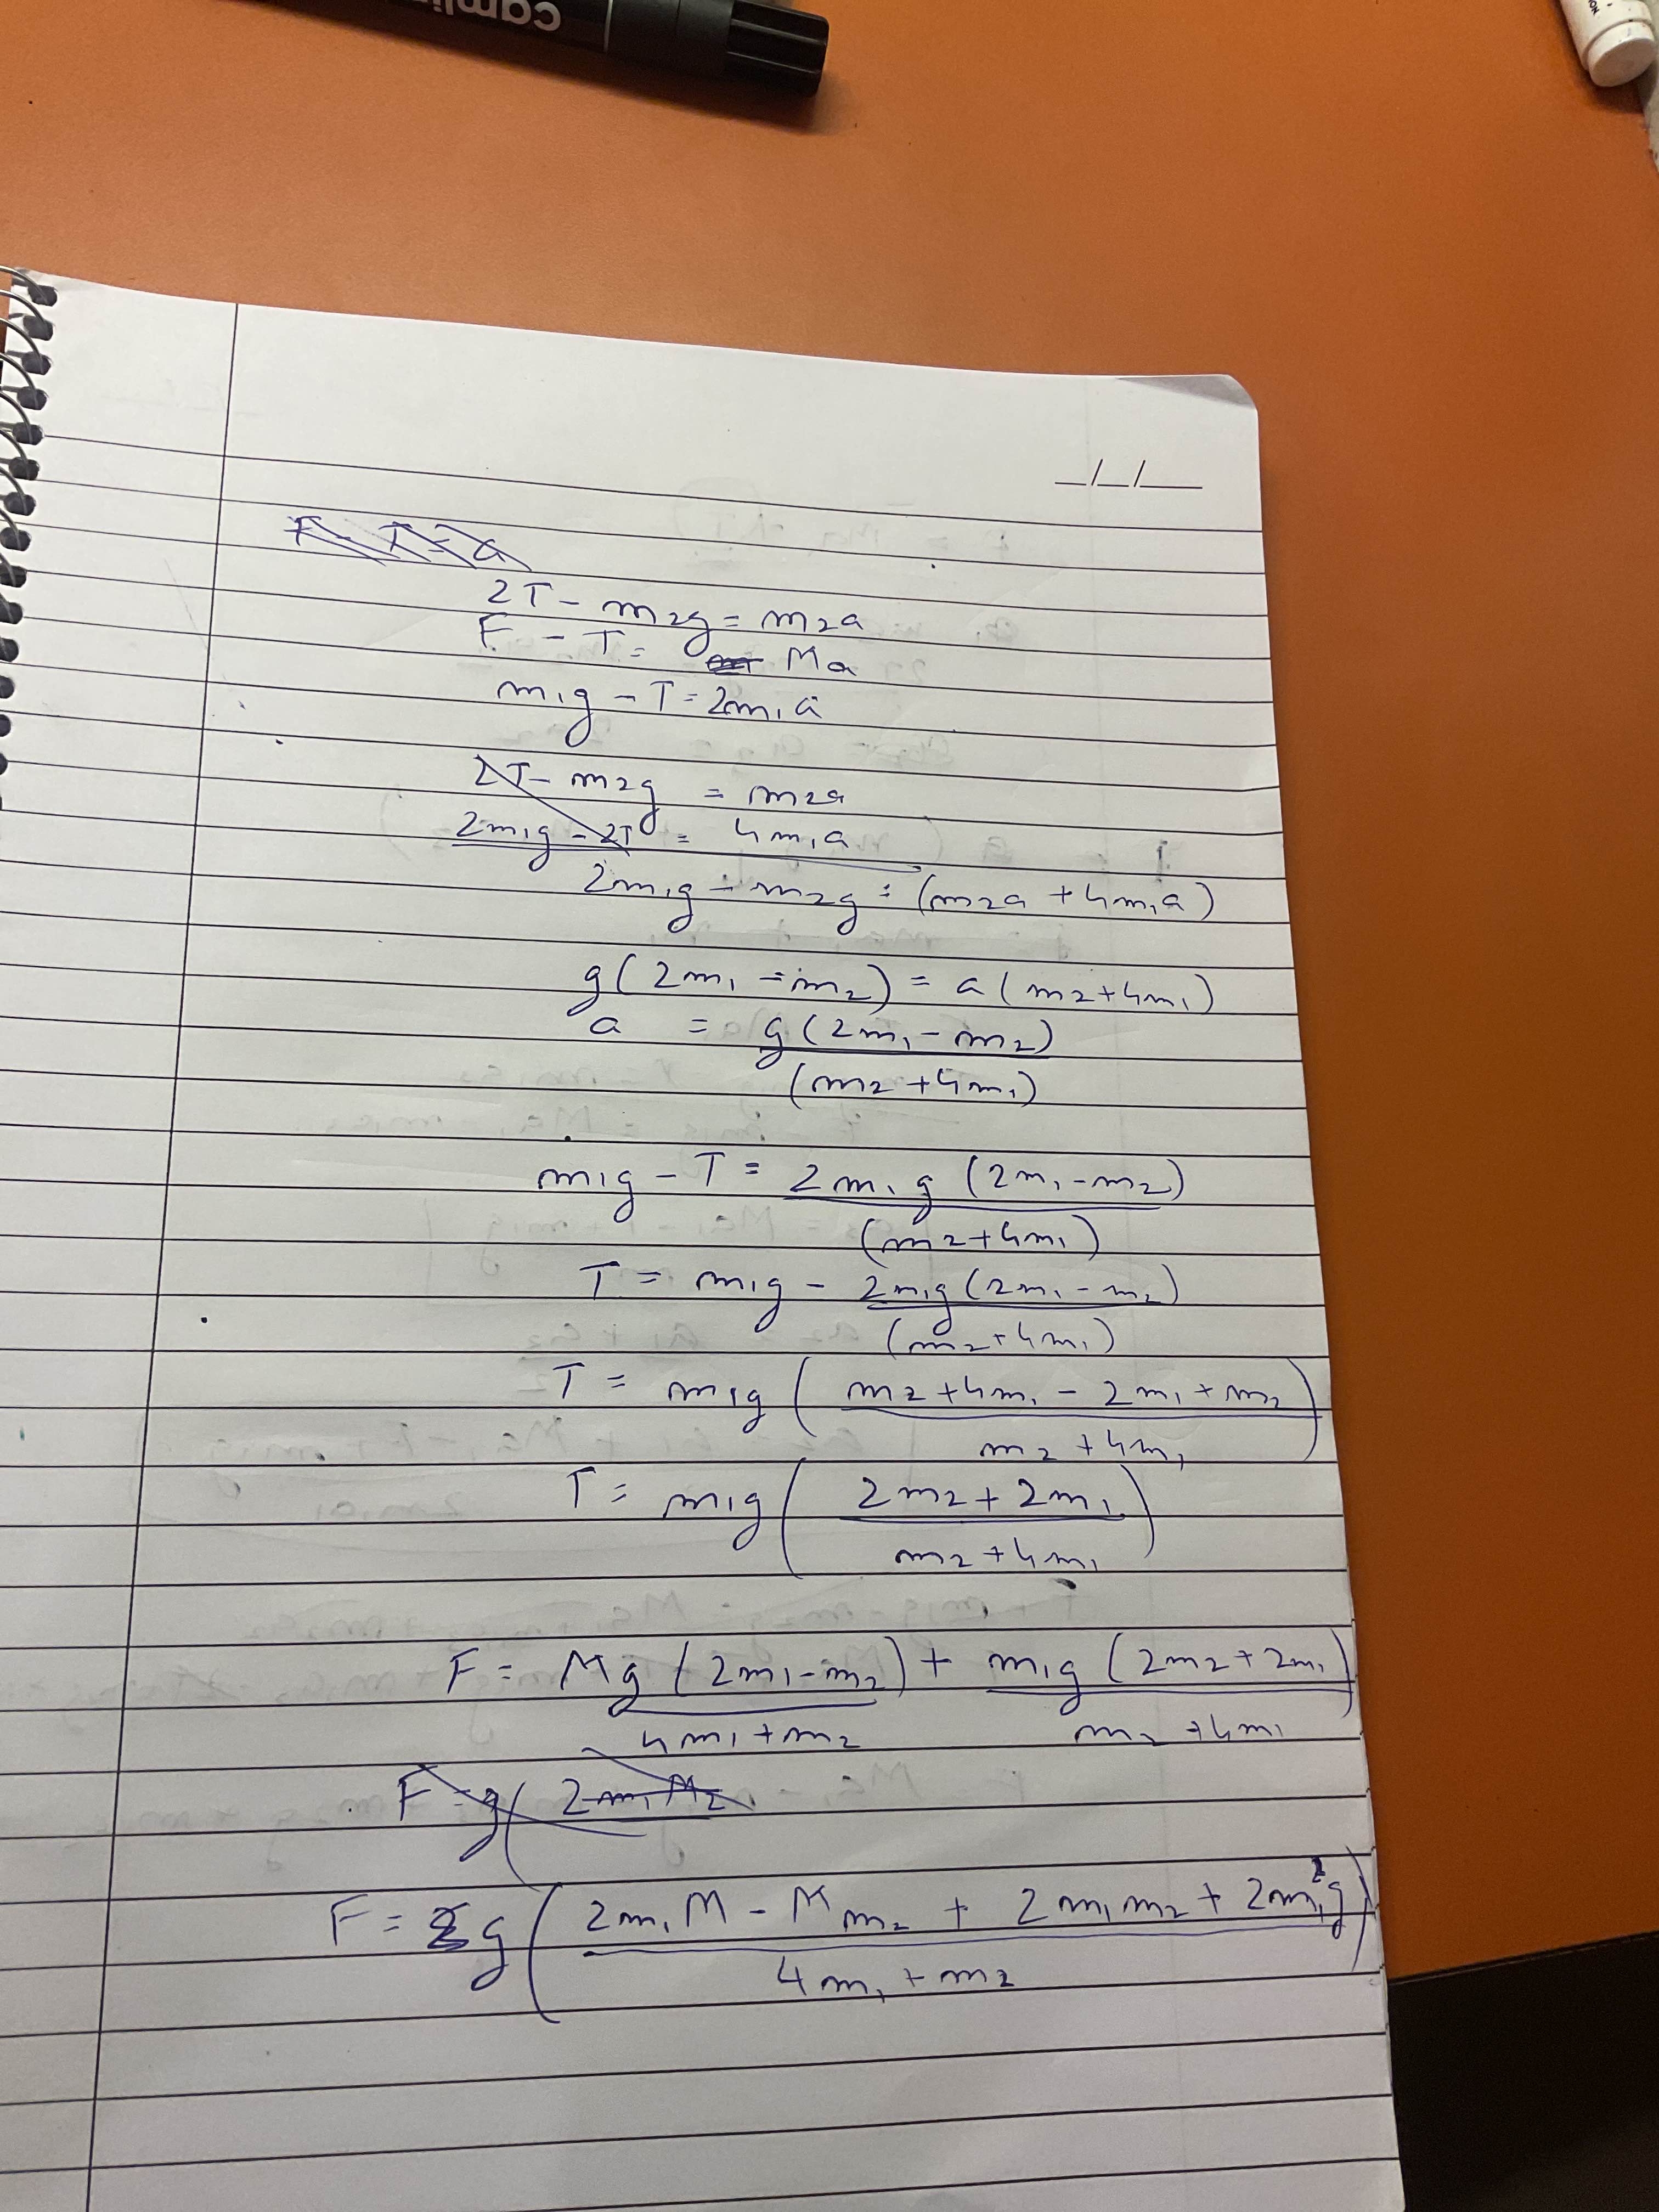 camlin
_/_/__
F - T = a
2T - m₂g = m₂a
F - T = Ma
m₁g - T = 2m₁a
2T - m₂g = m₂a
2m₁g - 2T = 4m₁a
2m₁g - m₂g = (m₂a + 4m₁a)
g(2m₁ - m₂) = a(m₂+4m₁)
a = g(2m₁ - m₂)
(m₂ + 4m₁)
m₁g - T = 2m₁g (2m₁ - m₂)
(m₂+4m₁)
T = m₁g - 2m₁g (2m₁ - m₂)
(m₂ + 4m₁)
T = m₁g ( m₂ + 4m₁ - 2m₁ + m₂ )
m₂ + 4m₁
T = m₁g ( 2m₂ + 2m₁ )
m₂ + 4m₁
F = Mg (2m₁ - m₂) + m₁g (2m₂ + 2m₁)
4m₁ + m₂ m₂ + 4m₁
F = g( 2m₁M₂
F = g ( 2m₁M - Mm₂ + 2m₁m₂ + 2m₁²g )
4m₁ + m₂